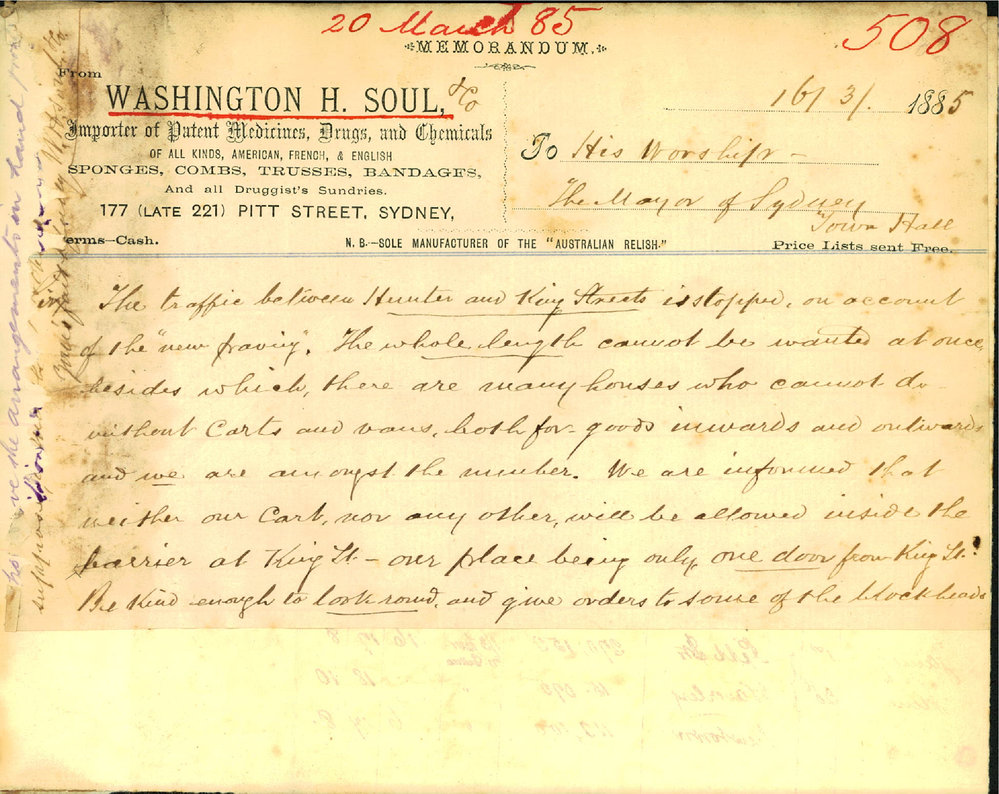 20 March 85
508
MEMORANDUM.
From
WASHINGTON H. SOUL, & Co
Importer of Patent Medicines, Drugs, and Chemicals
OF ALL KINDS, AMERICAN, FRENCH, & ENGLISH
SPONGES, COMBS, TRUSSES, BANDAGES,
And all Druggist's Sundries.
177 (LATE 221) PITT STREET, SYDNEY,
erms—Cash.
N.B.—SOLE MANUFACTURER OF THE "AUSTRALIAN RELISH."
16/3/. 1885
To His Worship –
The Mayor of Sydney
Town Hall
Price Lists sent Free.
The traffic between Hunter and King Streets is stopped, on account
of the "new paving". The whole length cannot be wanted at once,
besides which, there are many houses who cannot do
without Carts and vans, both for goods inwards and outwards
and we are amongst the number. We are informed that
neither our Cart, nor any other, will be allowed inside the
barrier at King St – our place being only one door from King St.
Be kind enough to look round, and give orders to some of the blockheads
ve the arrangements in hand